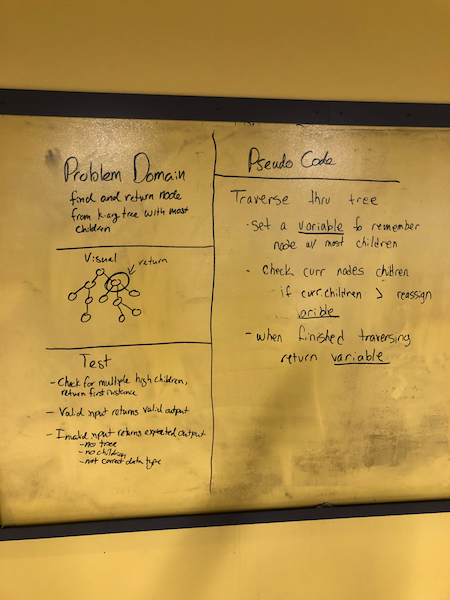 Problem Domain
find and return node
from k-ary tree with most
children
Visual
return
Test
- Check for multiple high children,
return first instance
- Valid input returns valid output
- Invalid input returns expected output
- no tree
- no children
- not correct data type
Pseudo Code
Traverse thru tree
- set a variable to remember
node w/ most children
- Check curr nodes children
- if curr.children > reassign
varible
- when finished traversing
return variable